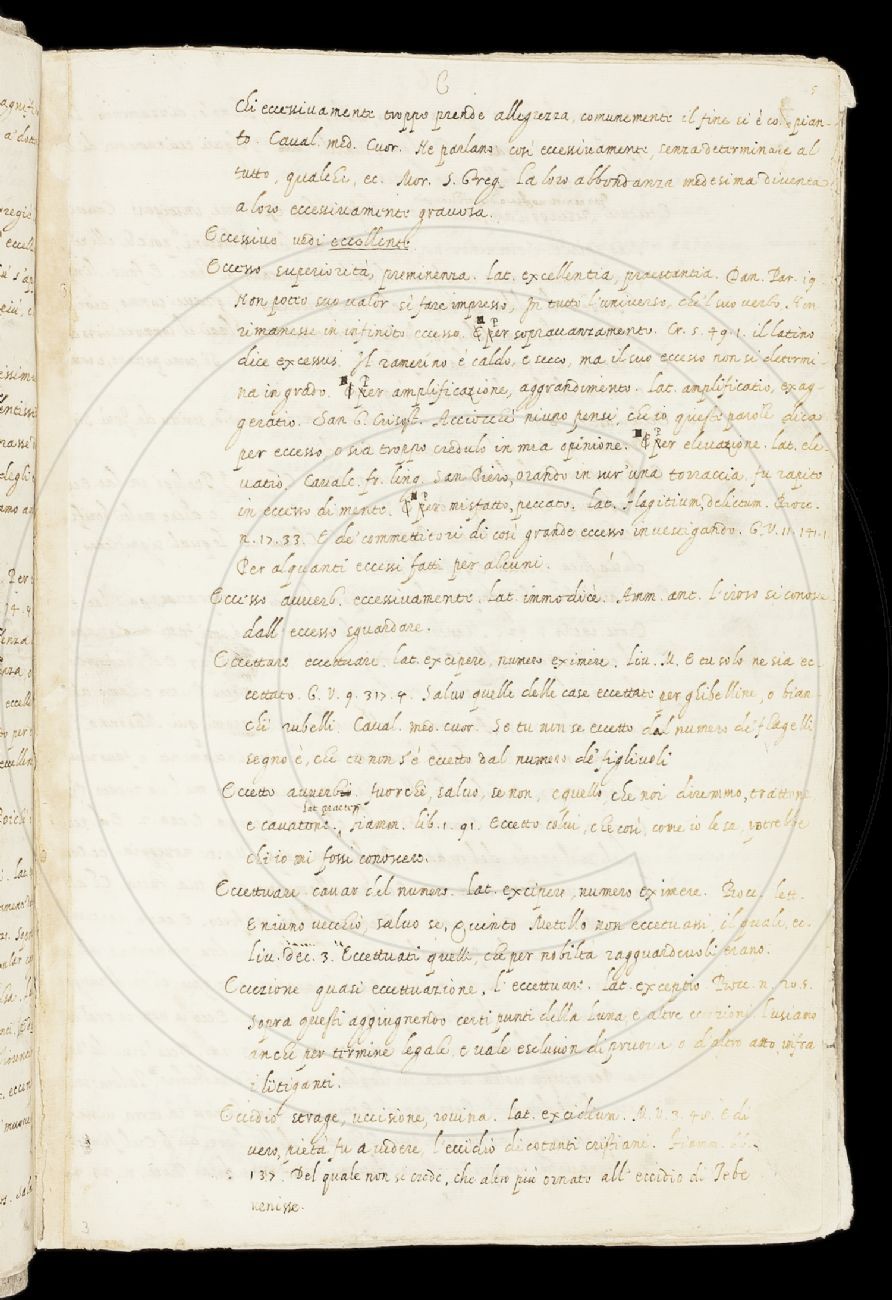 C
5
Chi eccessivamente troppo prende allegrezza, comunemente il fine si è co pian-
to. Caval. med. Cuor. Ne parlano così eccessivamente, senza determinare al
tutto, quale Ei, ec. Mor. S. Greg. La loro abbondanza medesima diventa
a loro eccessivamente gravosa.
Eccessivo vedi eccellente
Eccesso superiorità, preminenza. lat. excellentia, praestantia. Dan. Par. 19
Non potto suo valor si fare impresso, In tutto l'universo, che'l suo verbo, Non
rimanesse in infinito eccesso. ¶ Per sopravanzamento. Cr. 5. 49. 1. il latino
dice excessus. Il ramerino è caldo, e secco, ma il suo eccesso non si determi-
na in grado. ¶ Per amplificazione, aggrandimento. lat. amplificatio, exag-
geratio. San G. Crisost. Acciocchè niuno pensi, che io queste parole dica
per eccesso, o sia troppo credulo in mia opinione. ¶ Per elevazione. lat. ele-
vatio. Cavalc. fr. ling. San Piero, orando in sur' una torraccia, fu rapito
in eccesso di mente. ¶ Per misfatto, peccato. lat. flagitium, delictum. Bocc.
n. 17. 33. E de' commettitori di così grande eccesso investigando. G. V. 11. 141. 1
Per alquanti eccessi fatti per alcuni.
Eccesso avverb. eccessivamente. lat. immodicè. Amm. ant. l'iroso si conosce
dall' eccesso sguardare.
Eccettare eccettuare. lat. excipere, numero eximere. Liv. M. E tu solo ne sia ec-
cettato. G. V. 9. 317. 4. Salvo quelle delle case eccettate per ghibelline, o bian-
chi rubelli. Caval. med. cuor. Se tu non se eccetto dal numero de' flagelli
segno è, che tu non s'è eccetto dal numero de' figlivoli
Eccetto avverbio. fuorchè, salvo, se non, e quello, che noi diremmo, trattone,
lat. praeter
e cavatone. Fiamm. lib. 1. 91. Eccetto colui, che così, come io le sa, potrebbe
chi io mi fossi conoscere.
Eccettuare cavar del numero. lat. excipere, numero eximere. Bocc. lett.
E niuno vecchio, salvo se, Quinto Metello non eccetuassi, il quale, ec.
Liv. dec. 3. Eccettuati quelli, che per nobiltà ragguardevoli erano.
Eccezione quasi eccettuazione, l'eccettuare. lat. exceptio. Bocc. n. 20. 5.
Sopra questi aggiugnendo certi punti della luna, e altre eccezioni. l'usiamo
anche per termine legale, e vale esclusion di pruova o d'altro atto, infra
i litiganti.
Eccidio strage, uccisione, rovina. lat. excidium. M. V. 3. 48. E di
vero, pietà fu a vedere, l'eccidio di cotanti cristiani. Fiamm.
137. Del quale non si crede, che altro più ornato all' eccidio di Tebe
venisse.
3